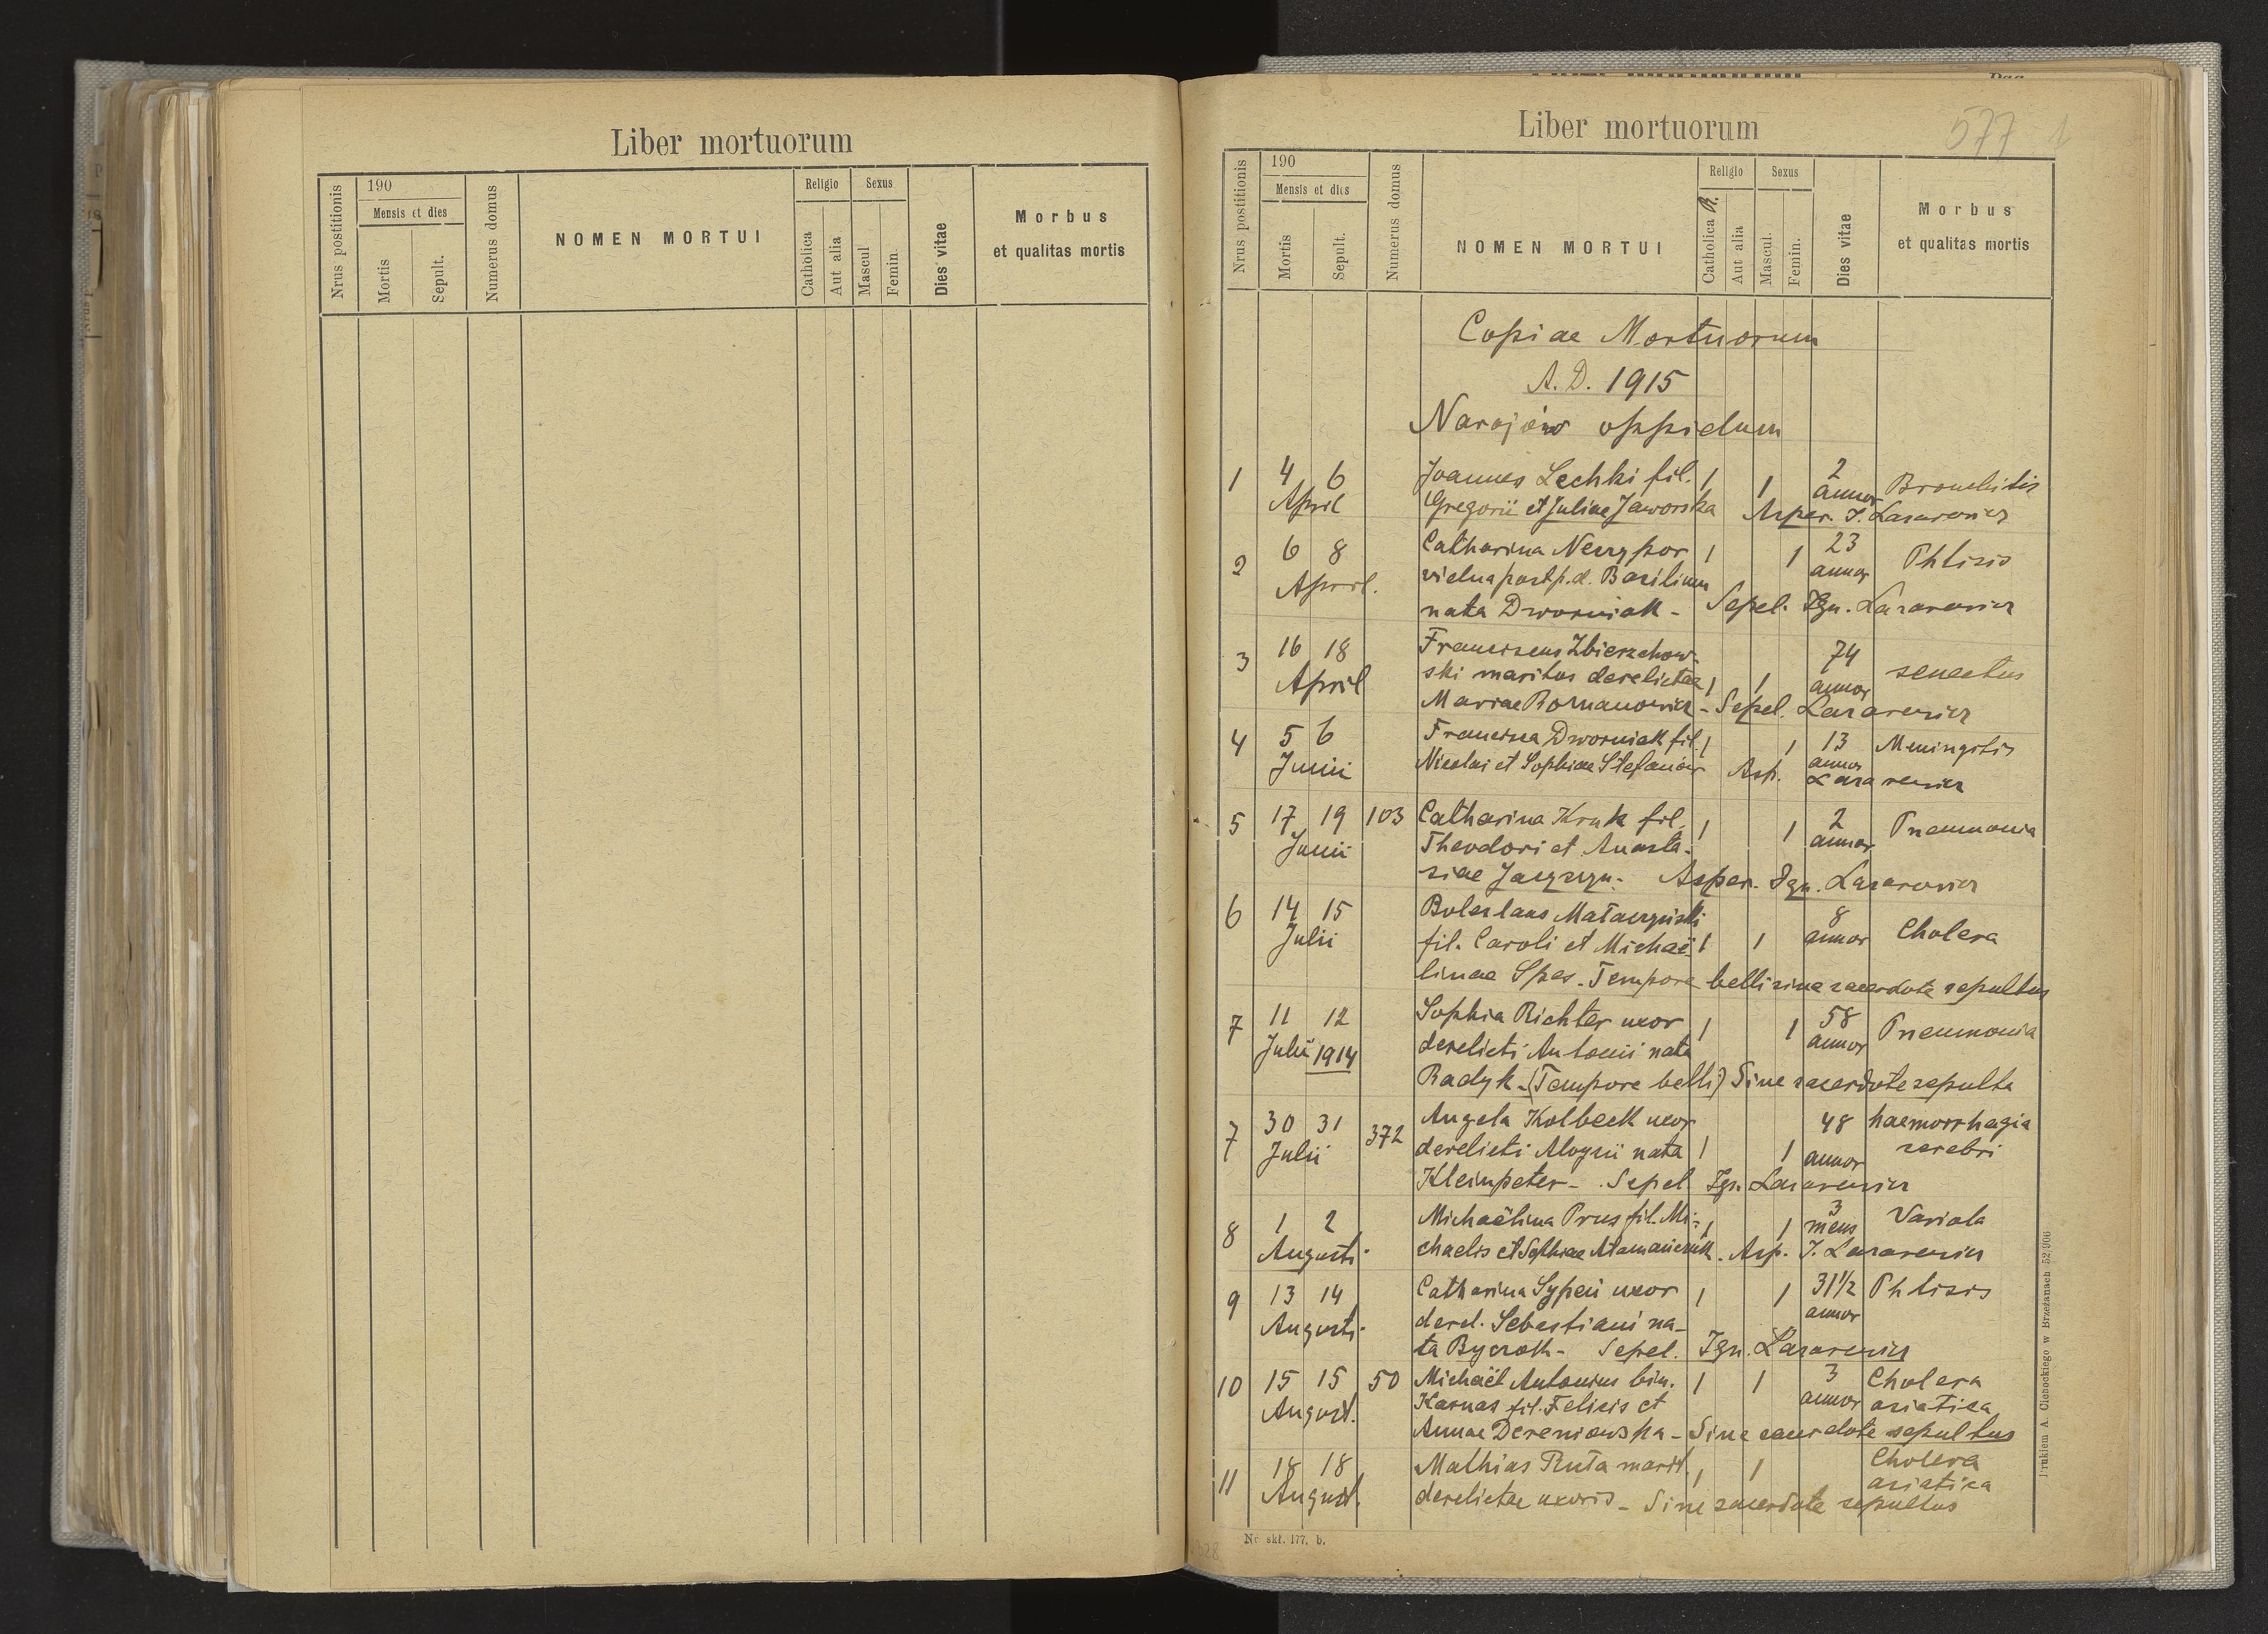 Liber mortuorum
Nrus postitionis
190
Mensis et dies
Mortis
Sepult.
Numerus domus
NOMEN MORTUI
Religio
Catholica
Aut alia
Sexus
Mascul
Femin.
Dies vitae
Morbus
et qualitas mortis
Liber mortuorum
577 1
Nrus postitionis
190
Mensis et dies
Mortis
Sepult.
Numerus domus
NOMEN MORTUI
Religio
Catholica R.
Aut alia
Sexus
Mascul.
Femin.
Dies vitae
Morbus
et qualitas mortis
Copiae Mortuorum
A. D. 1915
Narajów oppidum
1 4 6 Joannes Lechki fil. 1 1 2 Bronchitis
April Gregorii et Juliae Jaworska annor Asper. I. Lazarewicz
2 6 8 Catharina Neczypor 1 1 23 Phtisis
April. vidua post p. d. Basilium annor
nata Dworniak - Sepel. Ign. Lazarewicz
3 16 18 Franciscus Zbierzchow- 74 senectus
April ski maritus derelictae 1 1 annor
Mariae Romanowicz - Sepel. Lazarewicz
4 5 6 Francisca Dworniak fil. 1 1 13 Meningitis
Junii Nicolai et Sophiae Stefanów Asp. annor Lazarewicz
5 17 19 103 Catharina Kruk fil. 1 1 2 Pneumonia
Junii Theodori et Anasta- annor
siae - Asper. Ign. Lazarewicz
6 14 15 Boleslaus 8
Julii fil. Caroli et Michaë- 1 1 annor Cholera
linae Spes. Tempore belli sine sacerdote sepultus
7 11 12 Sophia Richter uxor 1 1 58 Pneumonia
Julii 1914 derelicti Antonii nata annor
Radyk - (Tempore belli) Sine sacerdote sepulta
7 30 31 372 Angela Kolbeck uxor 48 haemorrhagia
Julii derelicti Aloysii nata 1 1 annor cerebri
Kleinpeter - Sepel. Ign. Lazarewicz
8 1 2 Michaëlina Prus fil. Mi- 1 1 3 Variola
Augusti chaelis et Sophiae Atamańczuk. mens Asp. I. Lazarewicz
9 13 14 Catharina Sypeń uxor 1 1 31 1/2 Phtisis
Augusti derel. Sebastiani na- annor
ta - Sepel. Ign. Lazarewicz
10 15 15 50 Michaël Antonius bin. 1 1 3 Cholera
August. Karnas fil. Felicis et annor asiatica
Annae Dereniowska - Sine sacerdote sepultus
11 18 18 Mathias Ruta marit. 1 1 Cholera
August. derelictae uxoris - Sine sacerdote sepultus asiatica
Nr skł. 177. b.
Drukiem A. Cichockiego w Brzeżanach 552/906